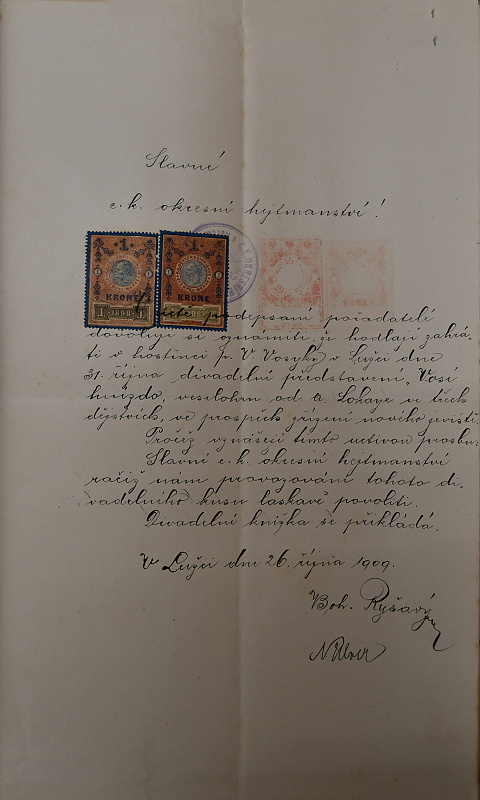 Slavné
c. k. okresní hejtmanství!
1
KRONE
1 1898 1
1
KRONE
1898
podepsaní pořadatelé
dovolují si oznámiti, že hodlají zahrá-
ti v hostinci p. V. Vosyky v Lužci dne
31. října divadelní představení „Vosí
hnízdo, veselohru od A. Lokaye ve třech
dějstvích, ve prospěch zřízení nového jeviště.
Pročež vznášejí tímto uctivou prosbu:
Slavné c. k. okresní hejtmanství
račiž nám provozování tohoto di-
vadelního kusu laskavě povoliti.
Divadelní knížka se přikládá.
V Lužci dne 26. října 1909.
Boh. Ryšavý